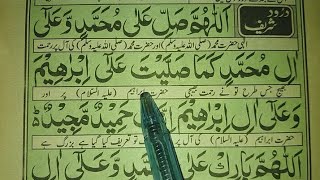 درود شریف
اَللّٰهُمَّ صَلِّ عَلٰى مُحَمَّدٍ وَّعَلٰٓى
الٰہی حضرت محمد (صلی اللہ علیہ وسلم) اور حضرت محمد (صلی اللہ علیہ وسلم) کی آل پر رحمت
اٰلِ مُحَمَّدٍ كَمَا صَلَّيْتَ عَلٰٓى اِبْرٰهِيْمَ
بھیج جس طرح تو نے رحمت بھیجی حضرت ابراہیم (علیہ السلام) پر اور
وَعَلٰٓى اٰلِ اِبْرٰهِيْمَ حَمِيْدٌ مَّجِيْدٌ
حضرت ابراہیم (علیہ السلام) کی آل پر تو تعریف کیا گیا ہے بزرگ ہے
اَللّٰهُمَّ بَارِكْ عَلٰى مُحَمَّدٍ وَّعَلٰٓى اٰلِ